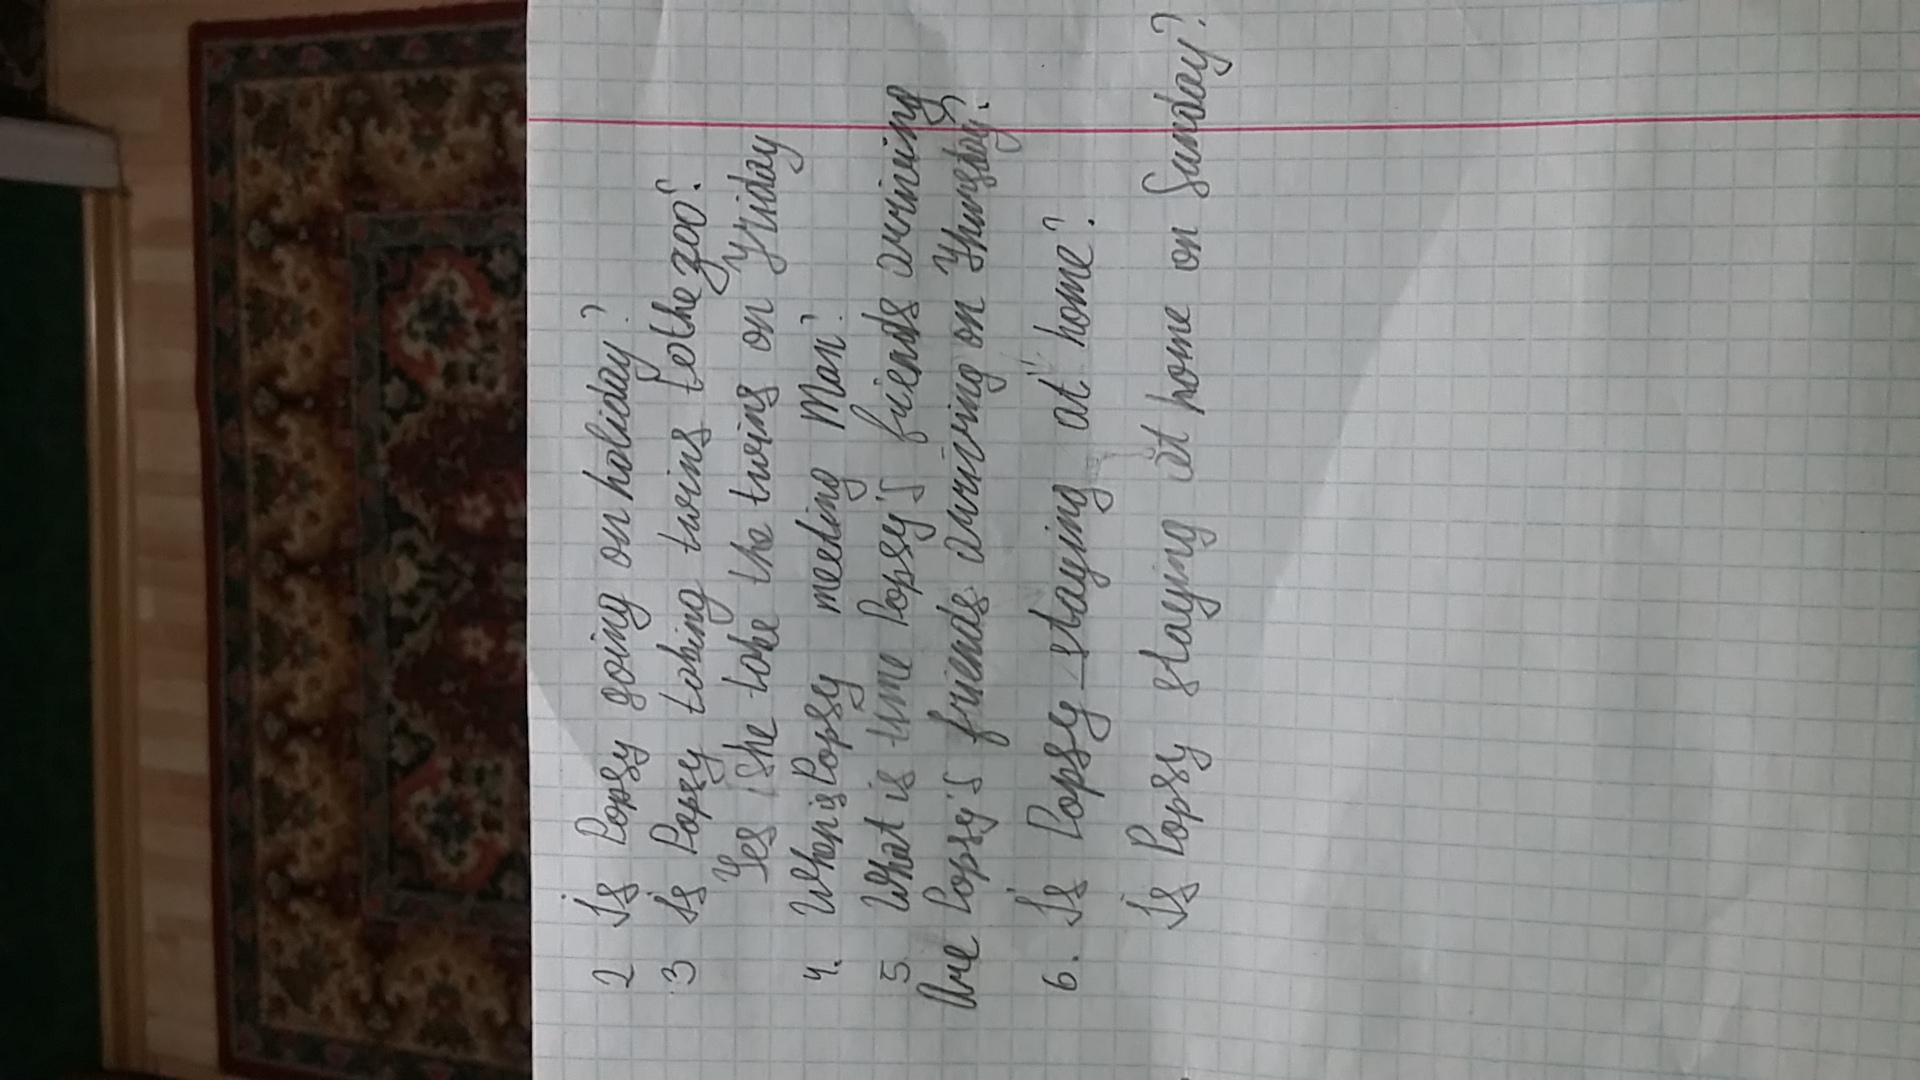 2 Is Popsy going on holiday?
3 Is Popsy taking twins to the zoo?
Yes she take the twins on Friday
4. When is Popsy meeting Max?
5. What is time Popsy's friends arriving
Are Popsy's friends arriving on Thursday.
6. Is Popsy staying at home?
Is Popsy staying at home on Sunday?